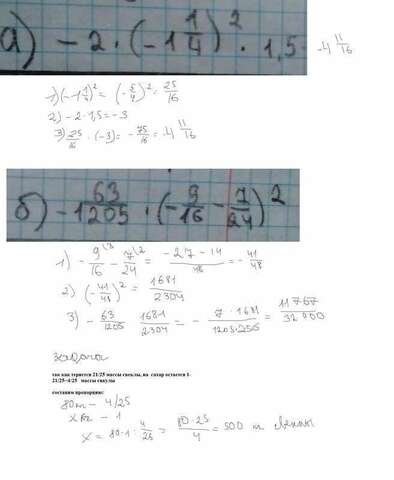 а) -2 · (-1 1/4)² · 1,5 = -4 11/16
1) (-1 1/4)² = (-5/4)² = 25/16
2) -2 · 1,5 = -3
3) 25/16 · (-3) = -75/16 = -4 11/16
б) -1 63/1205 · (-9/16 - 7/24)²
1) -9/16 \3 - 7/24 \2 = -27-14/48 = -41/48
2) (-41/48)² = 1681/2304
3) -63/1205 · 1681/2304 = -7 · 1681/1205·256 =
задача
так как теряется 21/25 массы свеклы, на сахар остается 1-
21/25=4/25 массы свеклы
составим пропорцию:
80т - 4/25
x - 1
x = 80·1 : 4/25 = 80·25/4 = 500 т свеклы